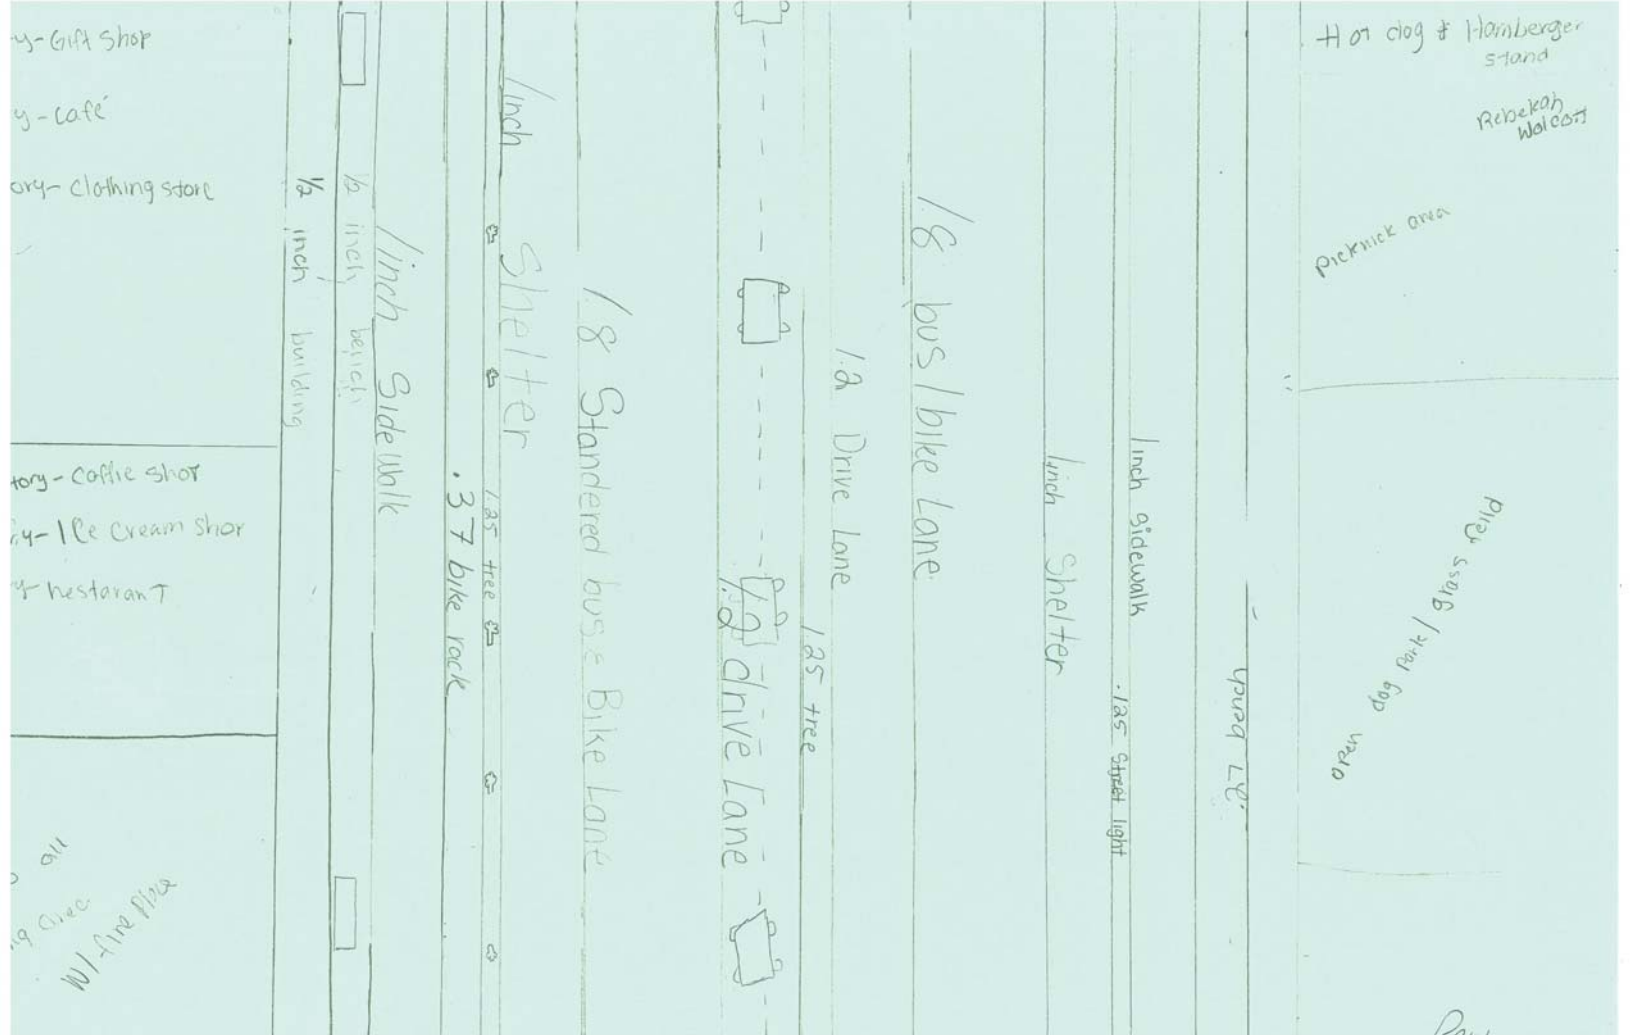 y-Gift Shop
y-café
ory-clothing store
tory-coffie shop
y-Ice Cream Shop
restarant
all
w/ fire place
1/2 inch building
1/2 inch bench
1 inch Sidewalk
.37 bike rack
1.25 tree
1 inch Shelter
1.8 Standered bus & Bike Lane
1.2 drive Lane
1.25 tree
1.2 Drive Lane
1.8 bus/bike Lane
1 inch Shelter
1 inch sidewalk
.125 Street light
bench
Hot dog & Hamberger
stand
Rebekah
Wolcott
Picknick area
open dog park/grass feild